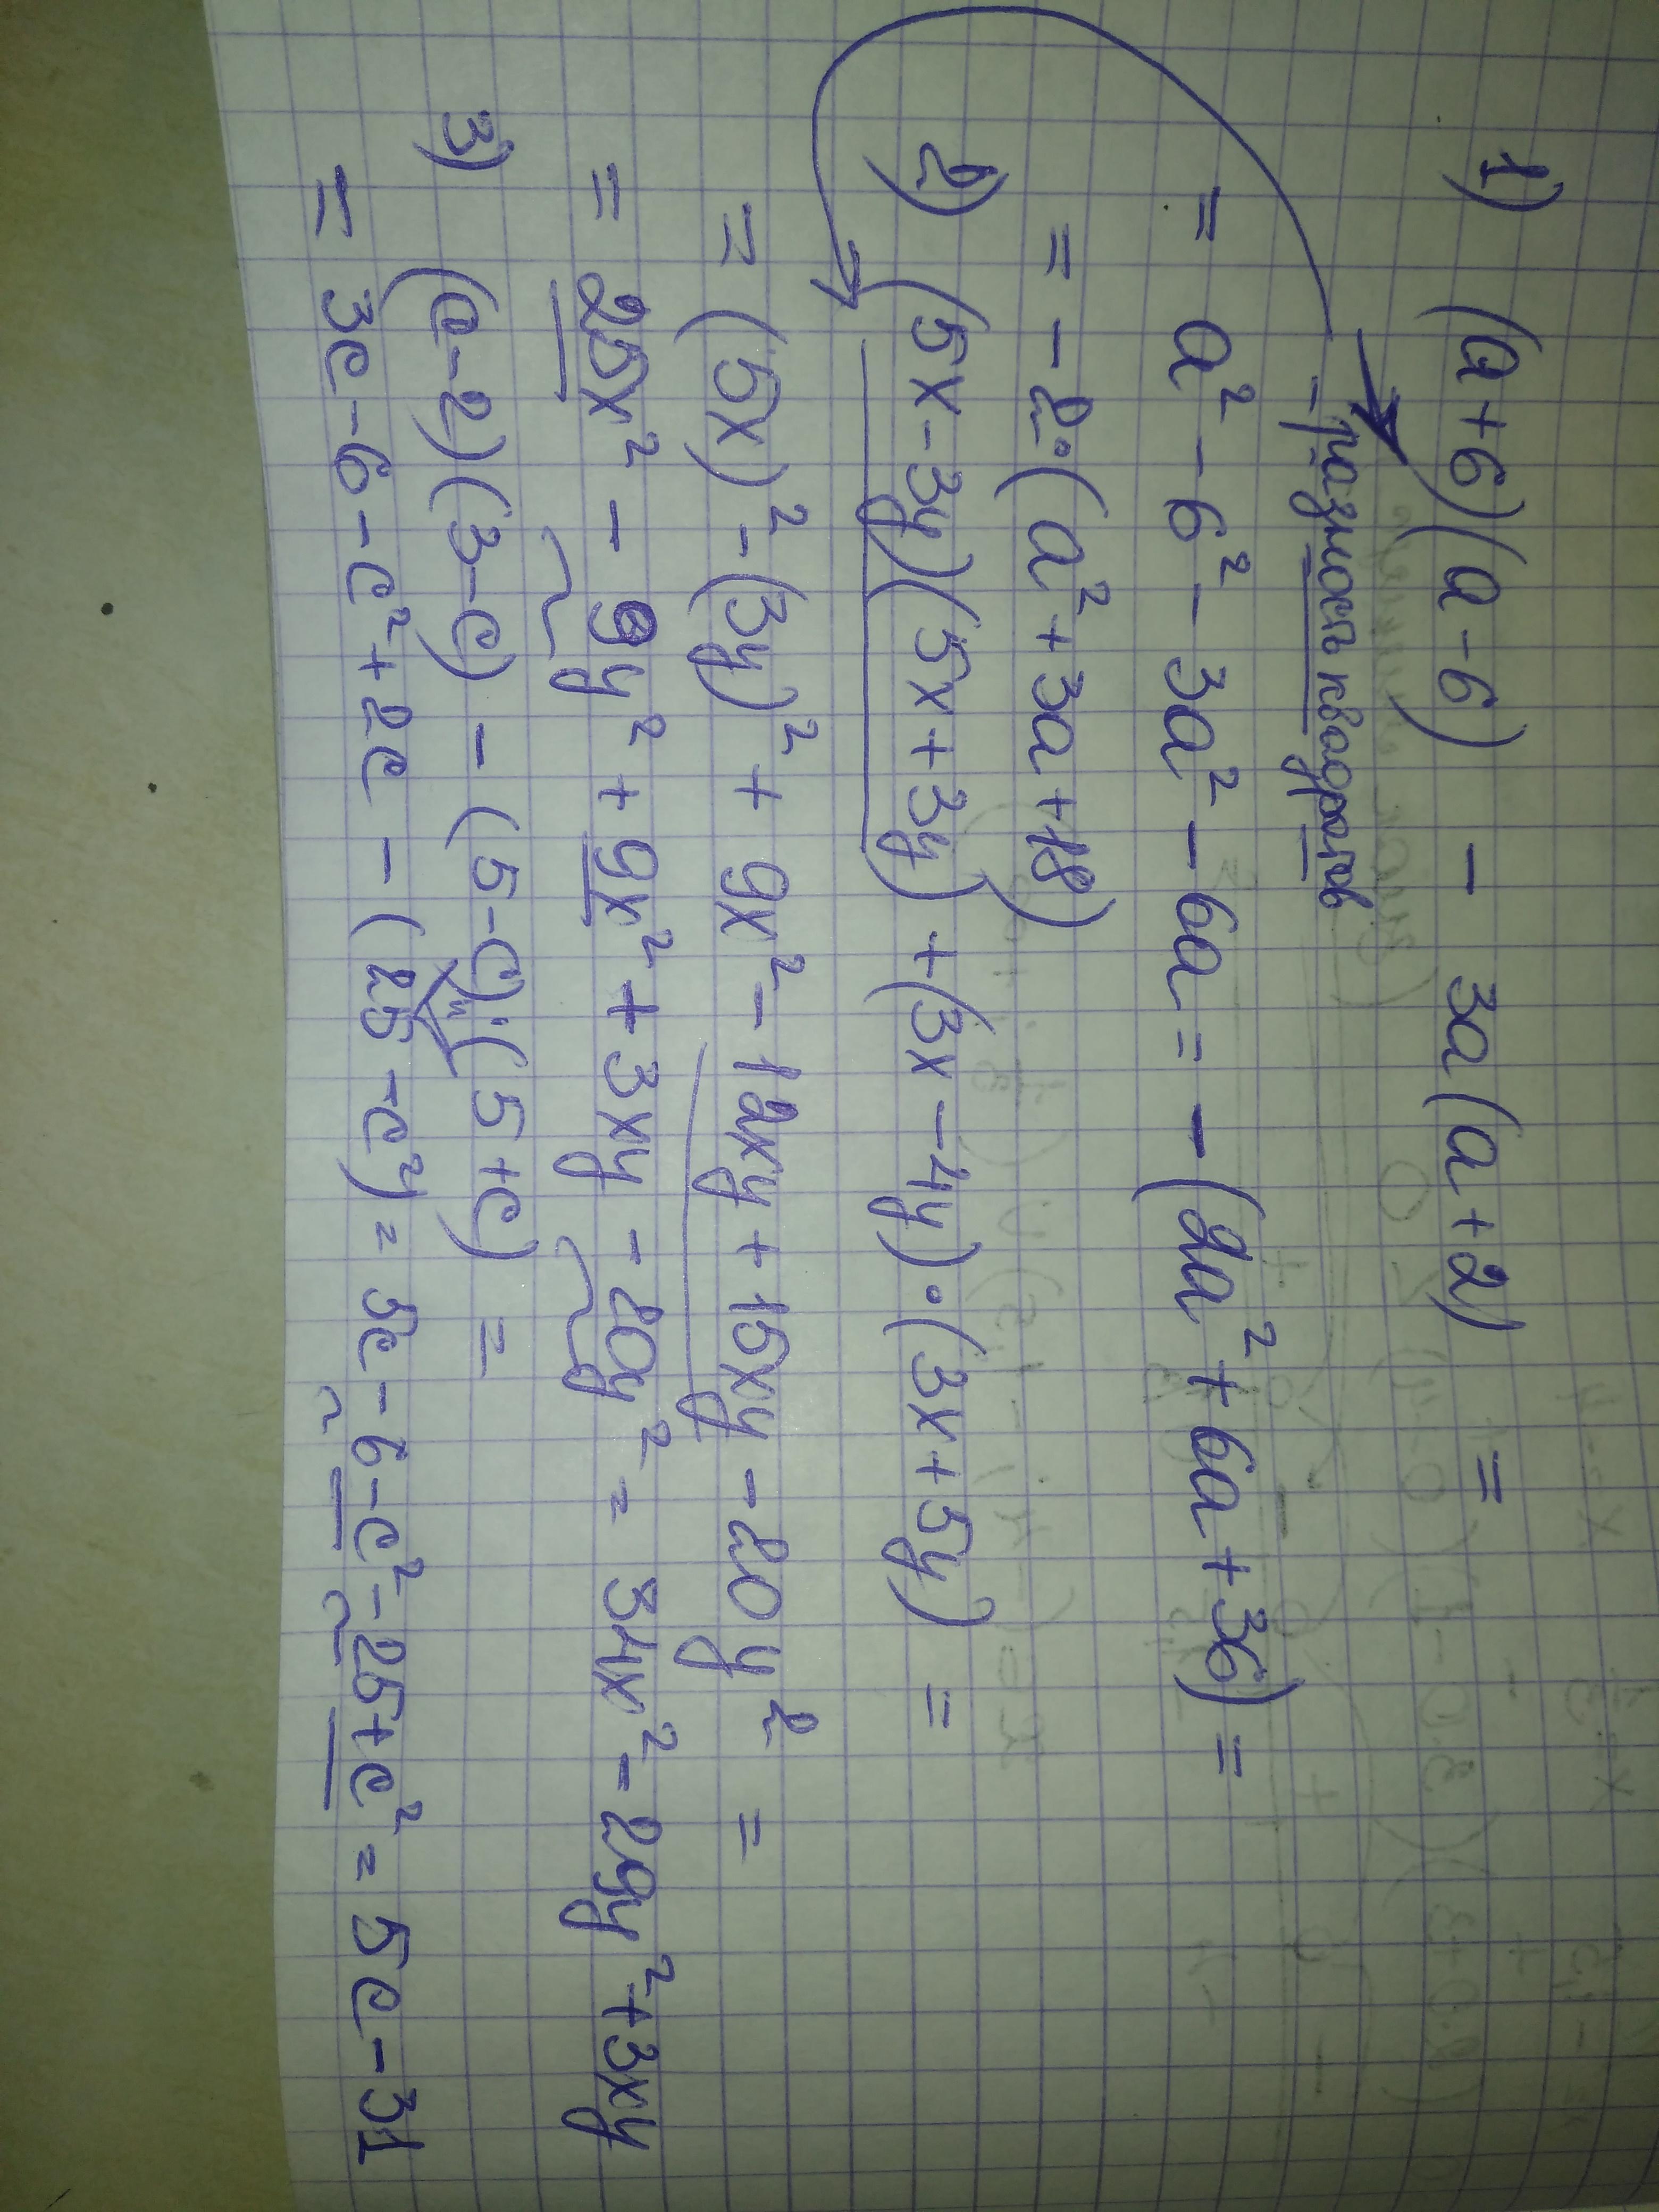 1) (a+6)(a-6) - 3a(a+2) =
- разность квадратов
= a² - 6² - 3a² - 6a = - (2a² + 6a + 36) =
= - 2·(a² + 3a + 18)
2) (5x - 3y)(5x + 3y) + (3x - 4y)·(3x + 5y) =
= (5x)² - (3y)² + 9x² - 12xy + 15xy - 20y² =
= 25x² - 9y² + 9x² + 3xy - 20y² = 34x² - 29y² + 3xy
3) (c-2)(3-c) - (5-c)·(5+c) =
= 3c - 6 - c² + 2c - (25 - c²) = 5c - 6 - c² - 25 + c² = 5c - 31